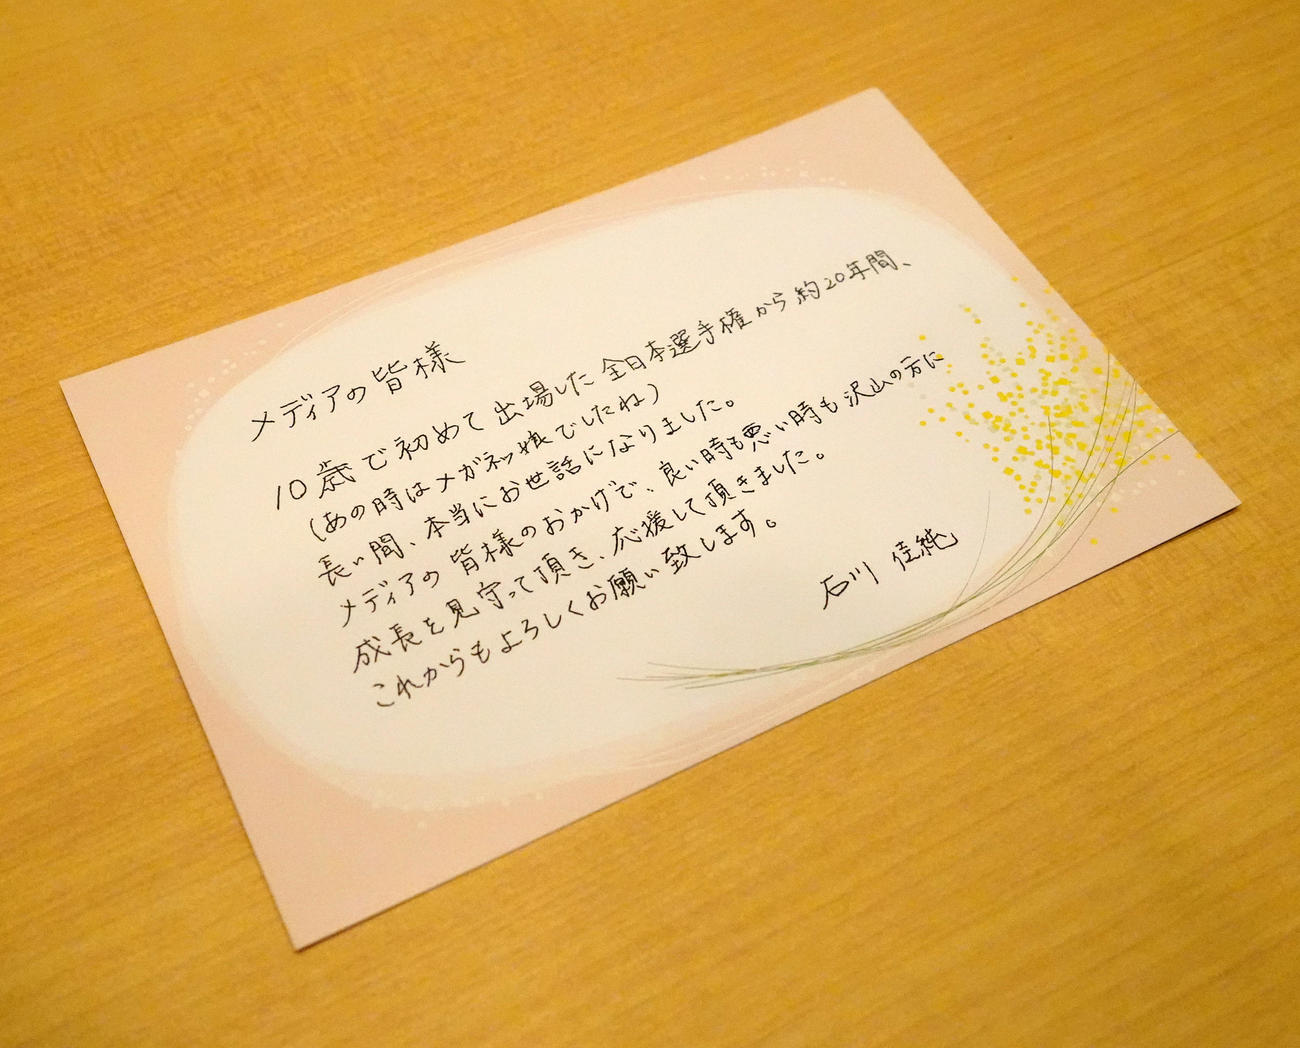 メディアの皆様
10歳で初めて出場した全日本選手権から約20年間、
(あの時はメガネッ娘でしたね)
長い間、本当にお世話になりました。
メディアの皆様のおかげで、良い時も悪い時も沢山の方に
成長を見守って頂き、応援して頂きました。
これからもよろしくお願い致します。
石川 佳純